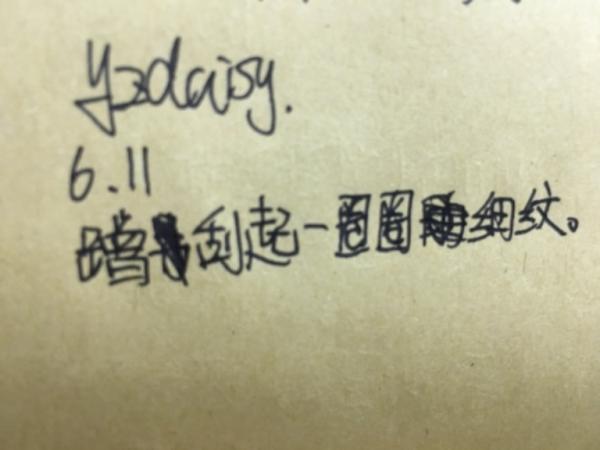 yzdaisy.
6.11
暗刮起一圈圈细纹。